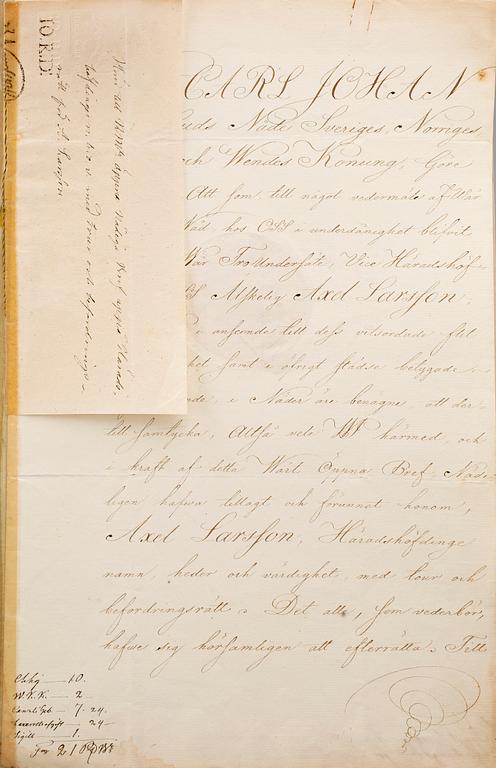 CARL JOHAN
Guds Nåde Sveriges, Norriges,
och Wendes Konung, Göre
Att som, till något vedermäle af Vår
Nåd, hos OSS i underdånighet blifvit
Vår TroUndersåte, Vice Häradshöf-
Axel Larsson,
i anseende till dess vitsordade flit
het samt i öfrigt städse
i Nåder äre benägne, att der-
till samtycka, Altså vele WI härmed, och
i kraft af detta Wårt Öppna Bref, Nåde-
ligen hafwa tillagt och förunnat honom,
Axel Larsson, Häradshöfdinge
namn, heder och värdighet, med tour och
befordringsrätt. Det alle, som vederbör,
hafwe sig hörsamligen att efterrätta. Till
10.R.D.
Öppna Nådiga
höfdinge med tour och befordrings-
rätt för A. Larsson
10.
W.K.K. 2
7. 24.
24
Sigill 1.
21